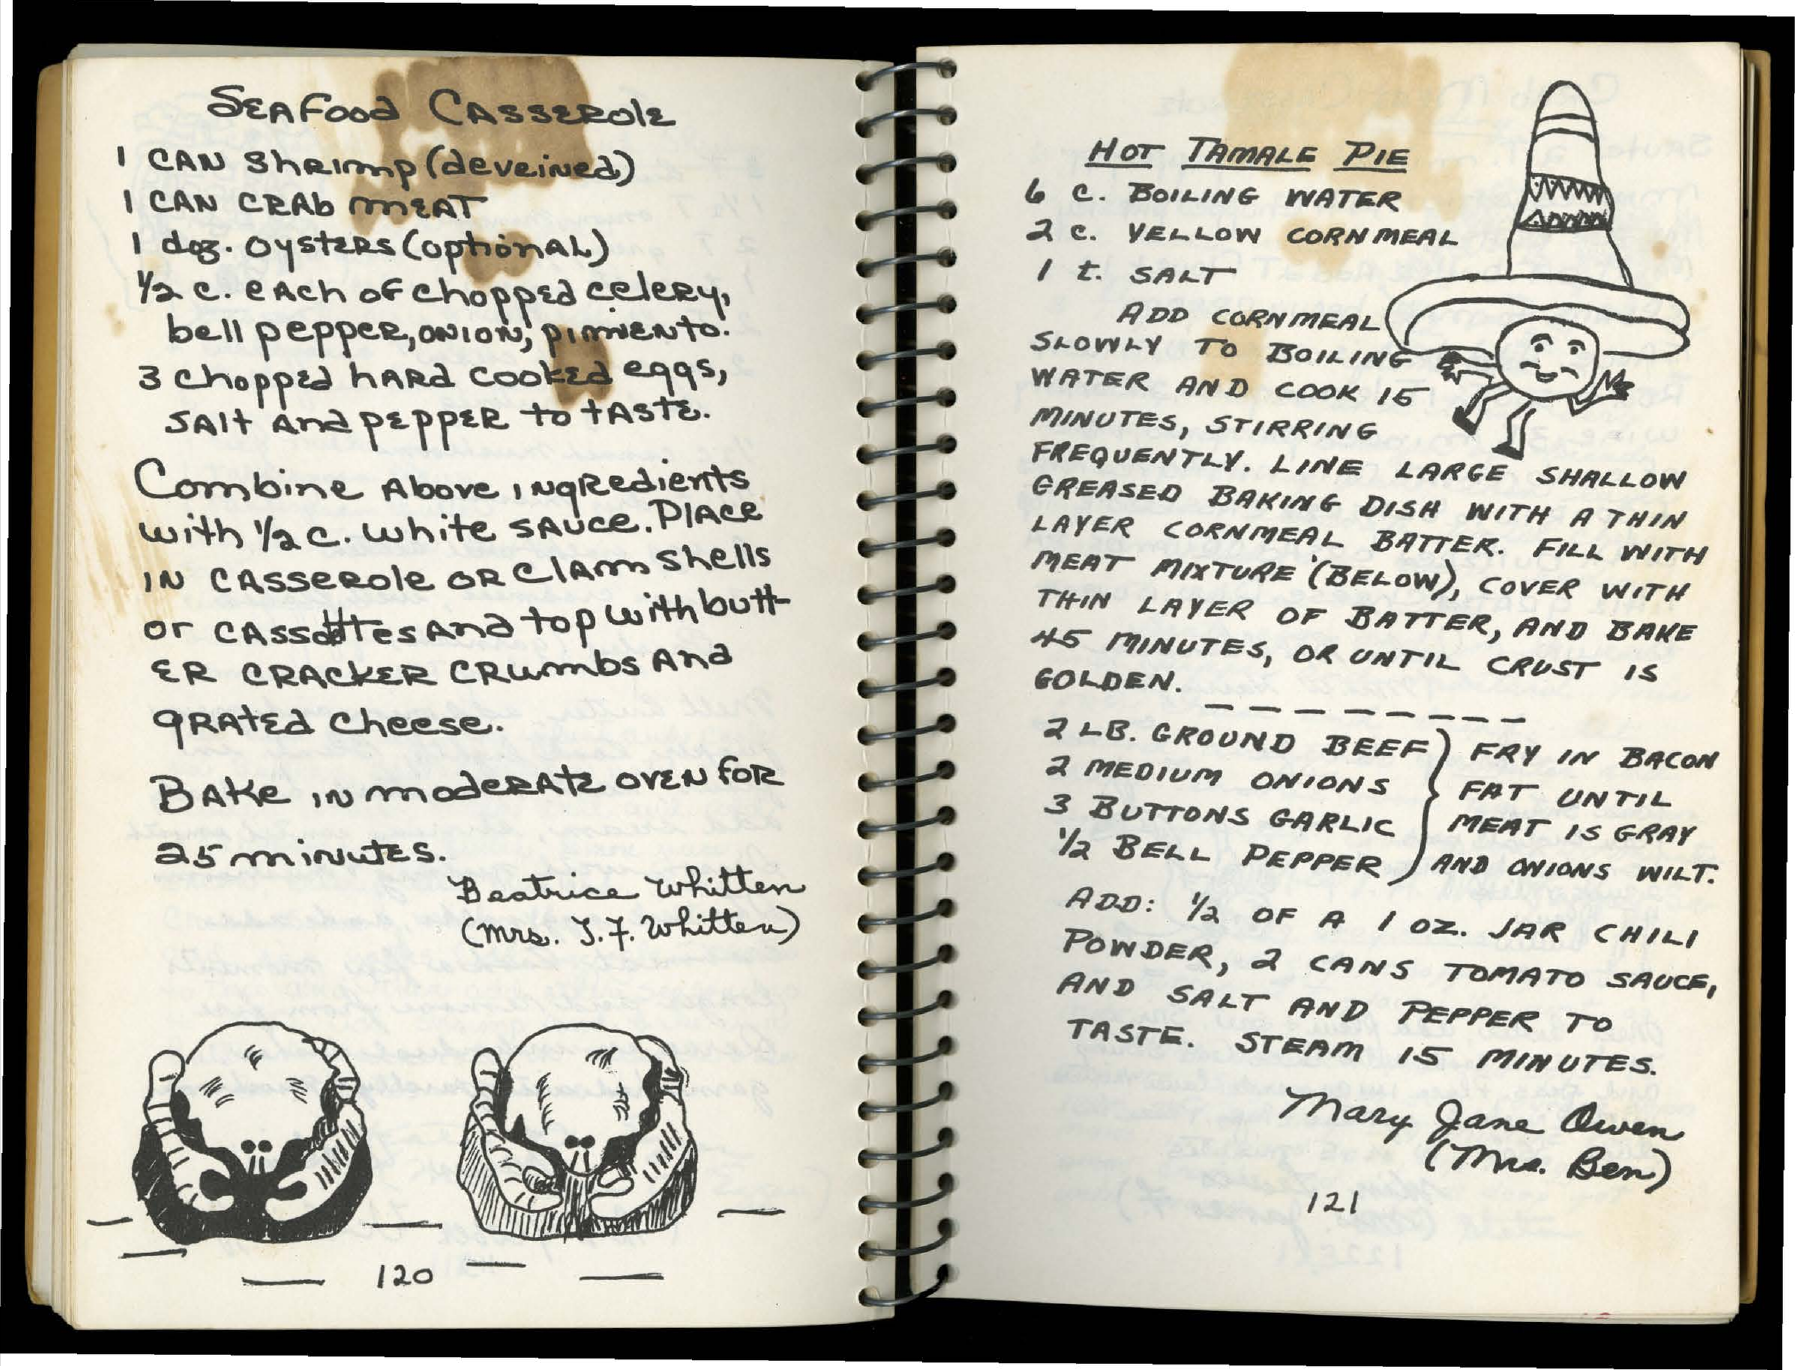 Seafood Casserole
1 can shrimp (deveined)
1 can crab meat
1 doz. oysters (optional)
1/2 c. each of chopped celery,
bell pepper, onion, pimiento.
3 chopped hard cooked eggs,
salt and pepper to taste.
Combine above ingredients
with 1/2 c. white sauce. Place
in casserole or clam shells
or and top with butt-
er cracker crumbs and
grated cheese.
Bake in moderate oven for
25 minutes.
Beatrice Whitten
(Mrs. J. F. Whitten)
120
HOT TAMALE PIE
6 C. BOILING WATER
2 C. YELLOW CORNMEAL
1 t. SALT
ADD CORNMEAL
SLOWLY TO BOILING
WATER AND COOK 15
MINUTES, STIRRING
FREQUENTLY. LINE LARGE SHALLOW
GREASED BAKING DISH WITH A THIN
LAYER CORNMEAL BATTER. FILL WITH
MEAT MIXTURE (BELOW), COVER WITH
THIN LAYER OF BATTER, AND BAKE
45 MINUTES, OR UNTIL CRUST IS
GOLDEN.
2 LB. GROUND BEEF } FRY IN BACON
2 MEDIUM ONIONS FAT UNTIL
3 BUTTONS GARLIC MEAT IS GRAY
1/2 BELL PEPPER AND ONIONS WILT.
ADD: 1/2 OF A 1 OZ. JAR CHILI
POWDER, 2 CANS TOMATO SAUCE,
AND SALT AND PEPPER TO
TASTE. STEAM 15 MINUTES.
Mary Jane Owen
(Mrs. Ben)
121